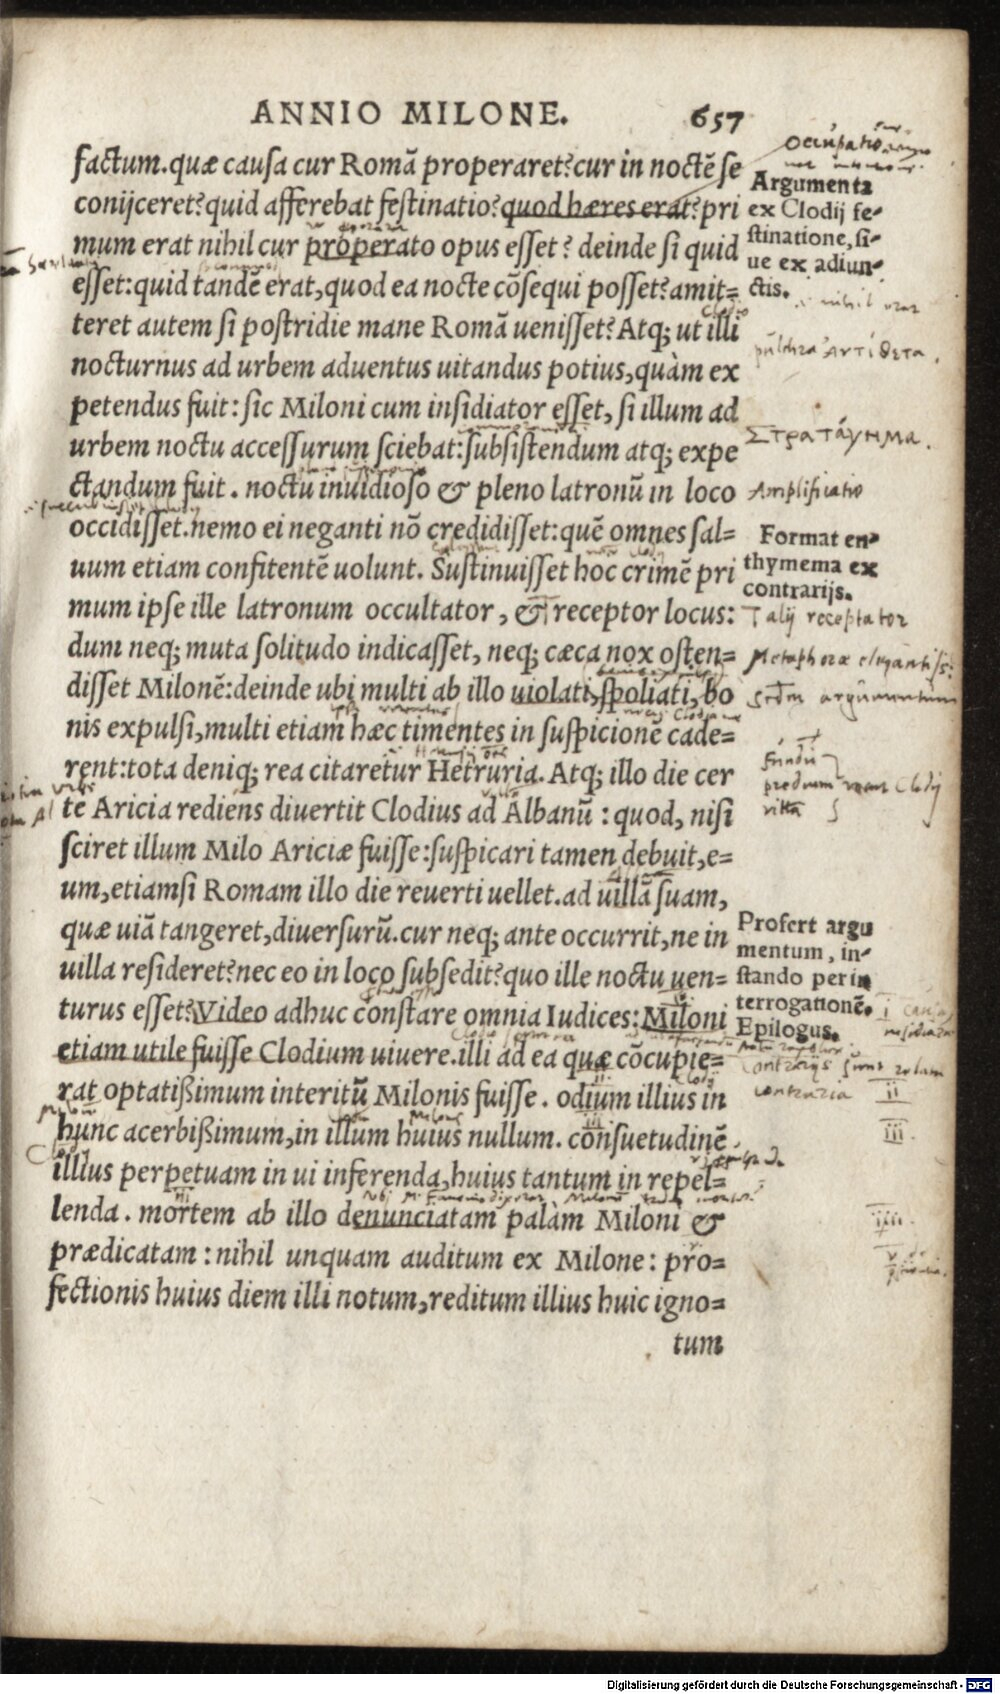 ANNIO MILONE. 657
factum.quæ causa cur Romã properaret?cur in noctẽ se
conijceret?quid afferebat festinatio?quod hæres erat?pri
mum erat nihil cur properato opus esset? deinde si quid
esset:quid tandẽ erat,quod ea nocte cõsequi posset?amit=
teret autem si postridie mane Romã uenisset?Atq; ut illi
nocturnus ad urbem aduentus uitandus potius,quàm ex
petendus fuit: sic Miloni cum insidiator esset, si illum ad
urbem noctu accessurum sciebat:subsistendum atq; expe
ctandum fuit. noctu inuidioso & pleno latronũ in loco
occidisset.nemo ei neganti nõ credidisset:quẽ omnes sal=
uum etiam confitentẽ uolunt. Sustinuisset hoc crimẽ pri
mum ipse ille latronum occultator, & receptor locus:
dum neq; muta solitudo indicasset, neq; cæca nox osten=
disset Milonẽ:deinde ubi multi ab illo uiolati,spoliati,bo
nis expulsi,multi etiam hæc timentes in suspicionẽ cade=
rent:tota deniq; rea citaretur Hetruria. Atq; illo die cer
te Aricia rediens diuertit Clodius ad Albanũ: quod, nisi
sciret illum Milo Ariciæ fuisse:suspicari tamen debuit,e=
um,etiamsi Romam illo die reuerti uellet.ad uillã suam,
quæ uiã tangeret,diuersurũ.cur neq; ante occurrit,ne in
uilla resideret?nec eo in loco subsedit?quo ille noctu uen=
turus esset?Video adhuc constare omnia Iudices:Miloni
etiam utile fuisse Clodium uiuere.illi ad ea quæ cõcupie=
rat optatißimum interitũ Milonis fuisse. odium illius in
hunc acerbißimum,in illum huius nullum. consuetudinẽ
illlus perpetuam in ui inferenda,huius tantum in repel=
lenda. mortem ab illo denunciatam palàm Miloni &
prædicatam: nihil unquam auditum ex Milone: pro=
fectionis huius diem illi notum,reditum illius huic igno=
tum
Occupatio
Argumenta
ex Clodij fe=
stinatione, si=
ue ex adiun=
ctis.
pulchra ἀντίθετα.
στρατάγημα.
Amplificatio
Format en=
thymema ex
contrarijs.
Talij receptator
Metaphoræ elegantiss:
argumentum
Profert argu
mentum, in=
stando per in
terrogationẽ.
Epilogus.
contrarijs sunt
contraria
ii
iii.
iiii.
Digitalisierung gefördert durch die Deutsche Forschungsgemeinschaft - DFG